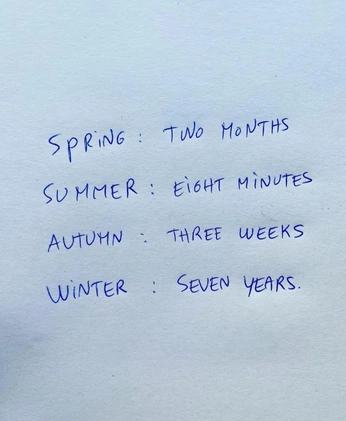 SPRING : TWO MONTHS
SUMMER : EIGHT MINUTES
AUTUMN : THREE WEEKS
WINTER : SEVEN YEARS.